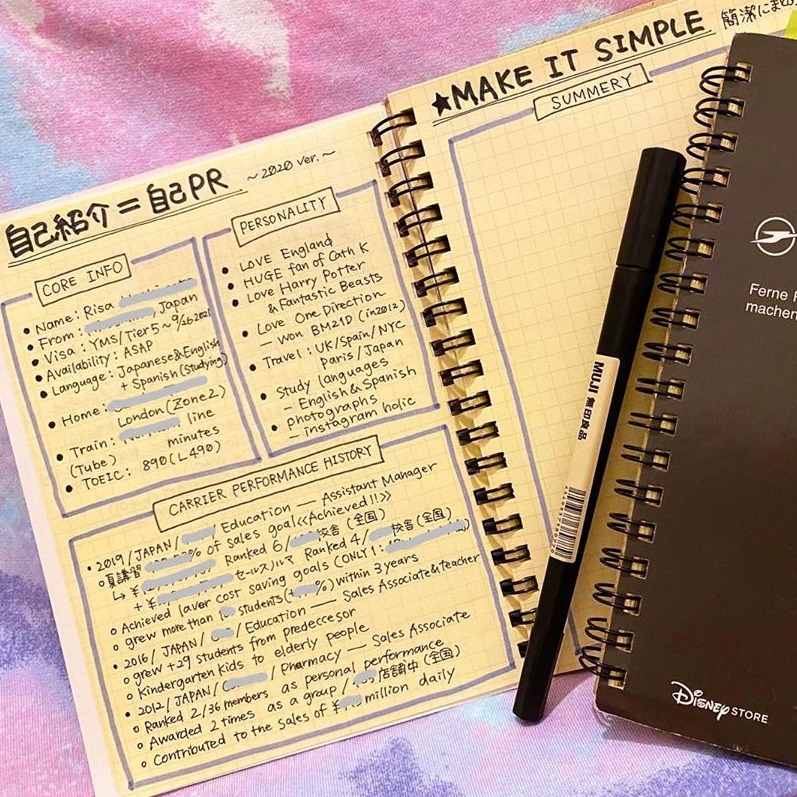 自己紹介=自己PR ~2020 ver.~
CORE INFO
• Name: Risa
• From: Japan
• Visa: YMS/Tier5~
• Availability: ASAP
• Language: Japanese&English
+ Spanish (Studying)
• Home:
London (Zone2)
• Train: line
(Tube) minutes
• TOEIC: 890 (L490)
PERSONALITY
• LOVE England
• HUGE fan of Cath K
• Love Harry Potter
& Fantastic Beasts
• Love One Direction
– won BM21D (in2012)
• Travel: UK/Spain/NYC
Paris/Japan
• Study languages
– English & Spanish
• Photographs
– instagram holic
CARRIER PERFORMANCE HISTORY
• 2019/JAPAN/ Education — Assistant Manager
○夏講習 % of sales goal <<Achieved!!>>
↳ ¥ Ranked 6/ 校舎 (全国)
+ ¥ セールス/ルマ Ranked 4/ 校舎 (全国)
○ Achieved laver cost saving goals (ONLY 1:
○ grew more than students (+ %) within 3 years
• 2016/JAPAN/ /Education — Sales Associate&teacher
○ grew +29 students from predeccesor
○ Kindergarten kids to elderly people
• 2012/JAPAN/ /Pharmacy — Sales Associate
○ Ranked 2/36 members as personal performance
○ Awarded 2 times as a group/ 店舗中 (全国)
○ Contributed to the sales of ¥ million daily
★MAKE IT SIMPLE 簡潔にまとめ
SUMMERY
MUJI 無印良品
Ferne
machen
Disney STORE